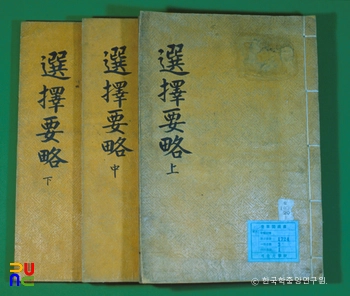 選擇要略 上
選擇要略 中
選擇要略 下
© 한국학중앙연구원